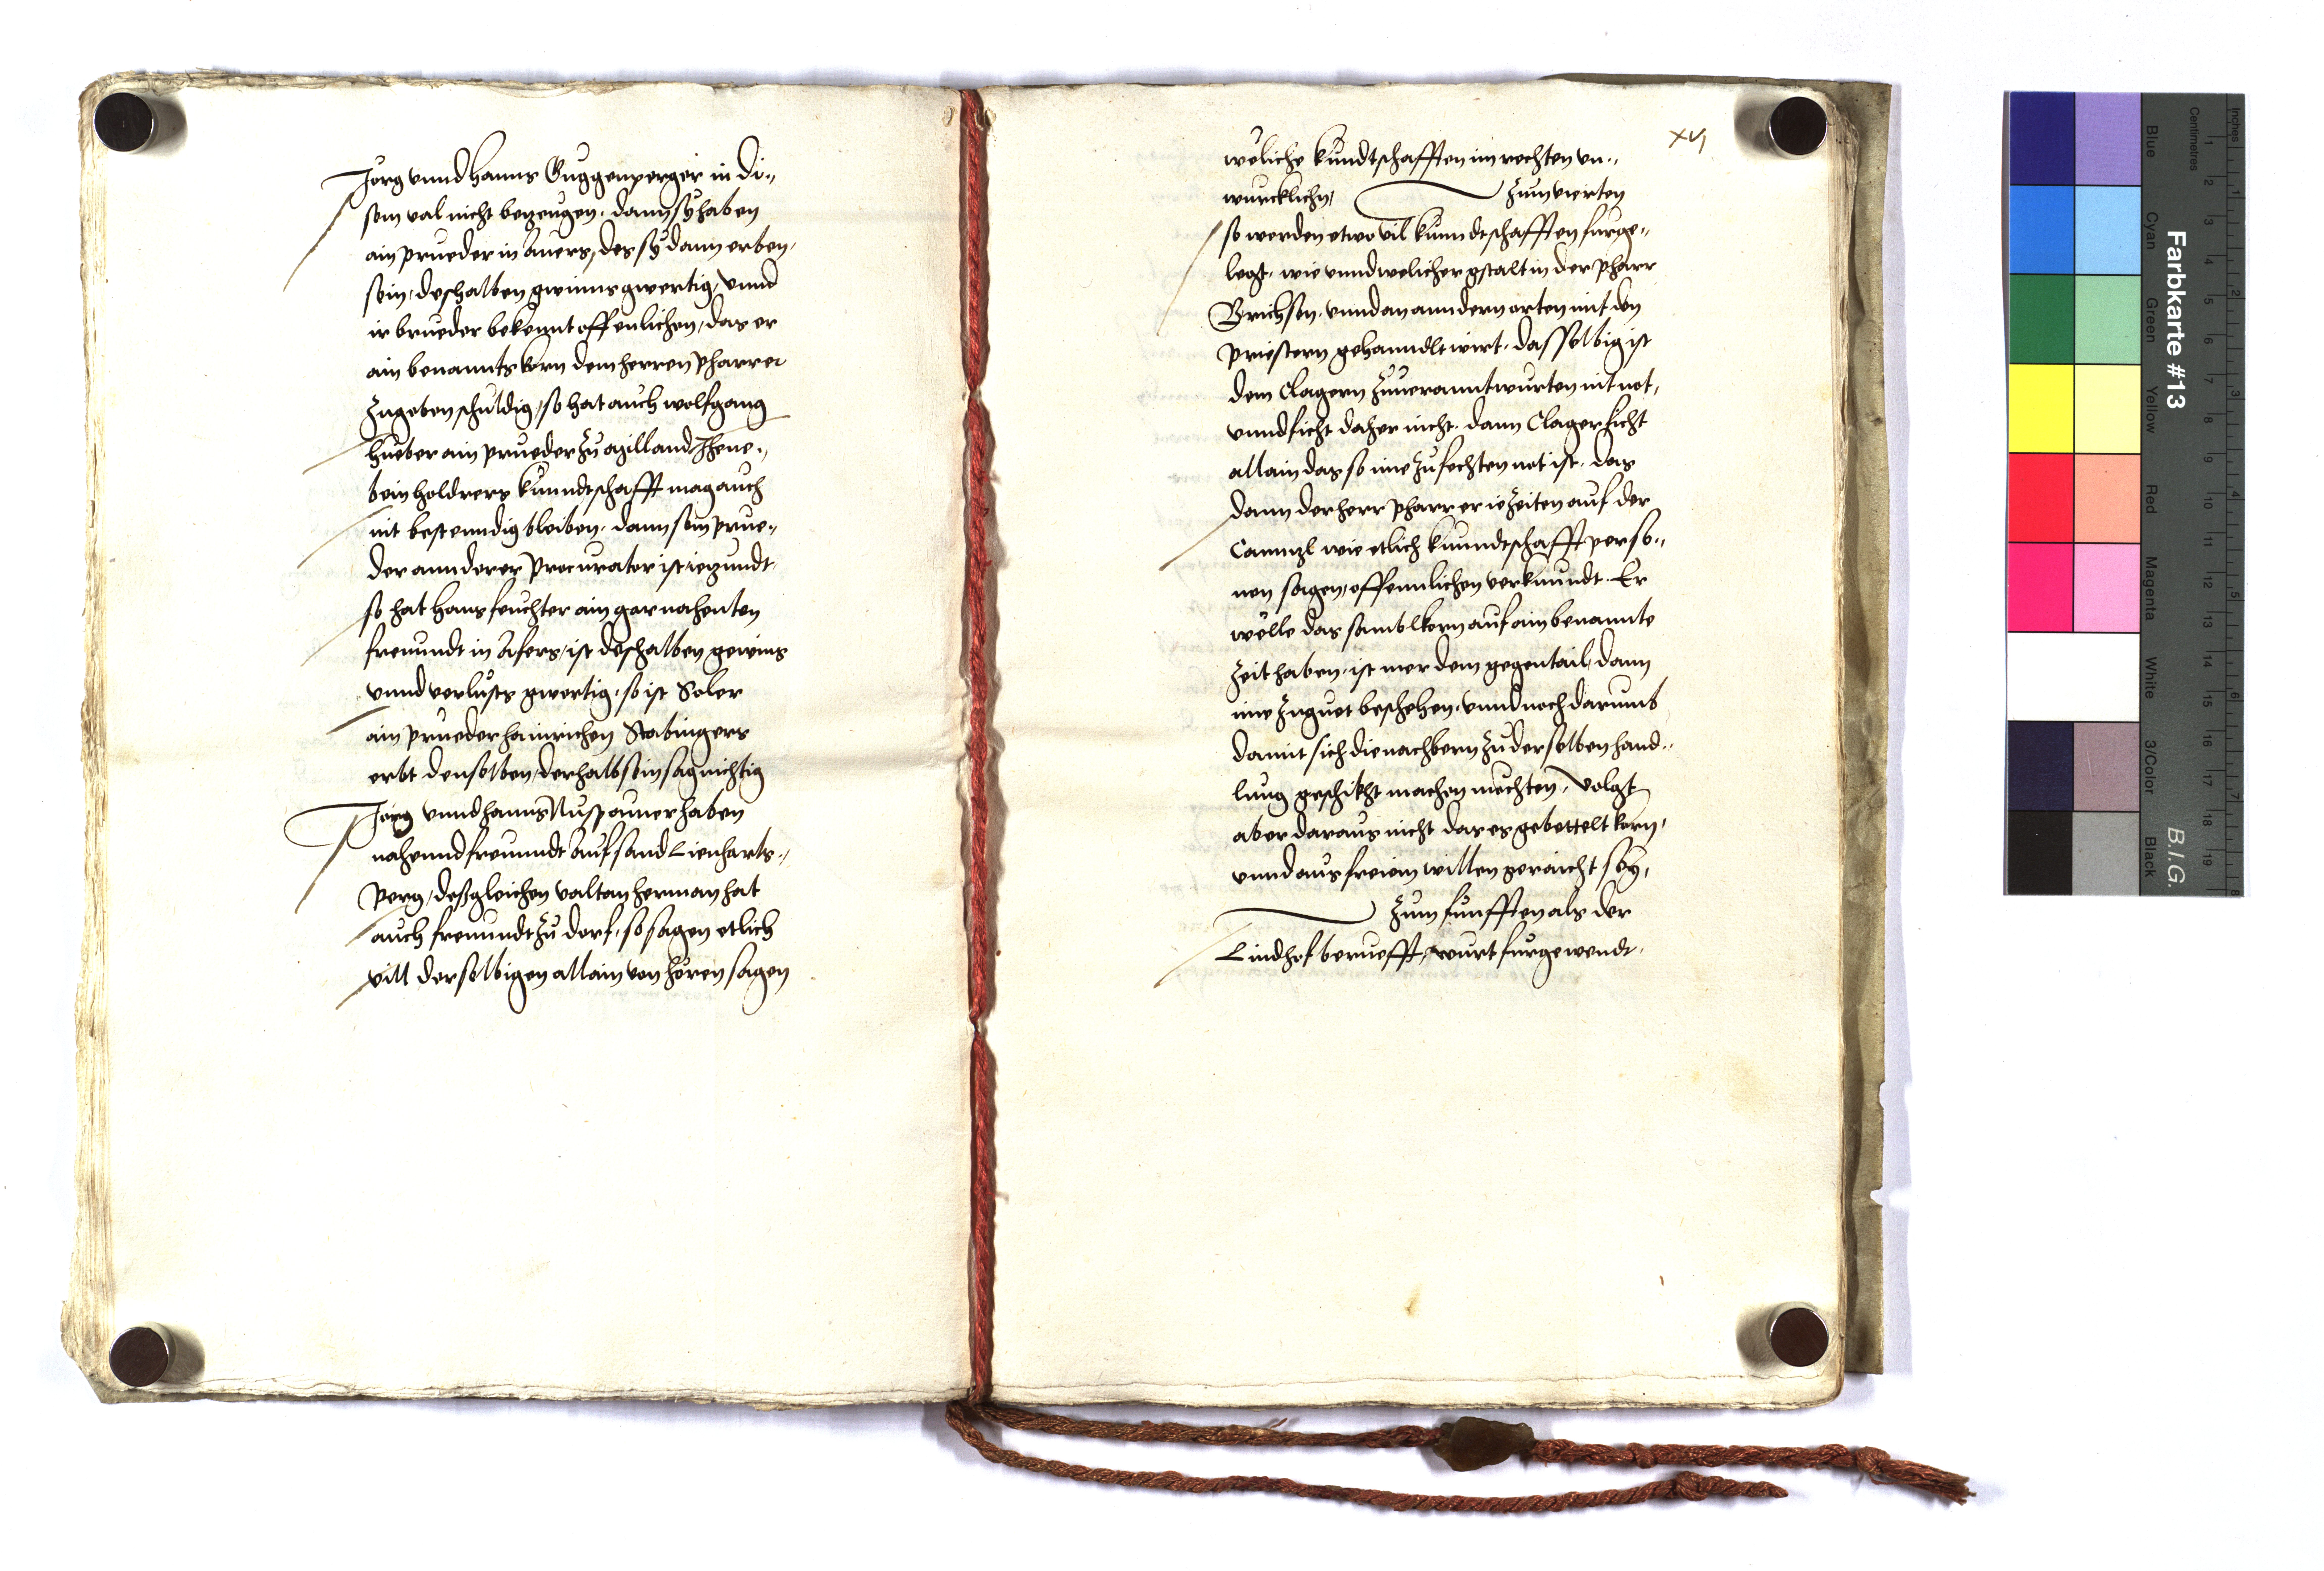 Jorg vnnd Hanns Guggenperger in di„
sem val nicht bezeugen. dann sy haben
ain prueder in Auers, des sy dann erben,
sein, deshalben gwinns gwertig, vnnd
ir brueder bekennt offenlichen, das er
ain benannts korn dem herren pharrer
zugeben schuldig, so hat auch wolfgang
Hueber ain prueder zu
bein holdrers kunndtschafft mag auch
nit bestenndig bleiben. dann sein prue„
der annderer Procurator ist iezundt
so hat Hans feuchter ain gar nahenten
freuundt in Afers, ist deshalben gewins
vnnd verlusts gwertig, so ist Soler
ain prueder Hainrichen Stabingers
erbt denselben, derhalb sein sag nichtig
Jorg vnnd hanns Nuspaumer haben
nahennd freunndt auf sand Lienharts„
Perg, deßgleichen valtan herman hat
auch freuundt zu dorf, so sagen etlich
vill derselbigen allain von hören sagen
xvj
weliche kundtschafften im rechten vn„
wurcklichn,
zum vierten
so werden etwo vil kunndtschafften furge„
legt. wie vnnd welicher gstalt in der pharr
Brichsen. vnnd an anndern orten mit den
priestern gehanndlt wirt. dasselbig ist
dem Clagern zuuerantwurten nit not,
vnnd ficht daher nicht. dann Clager ficht
allain das so ime zufechten not ist. das
dann der herr pharrer ie zeiten auf der
Cannzl wie etlich kunndtschafft perso„
nen sagen, offennlichen verkundt. Er
wölle das sambl korn auf ain benannte
zeit haben, ist mer dem gegentail, dann
ime zuguet beschehen, vnnd noch darumb
damit sich die nachbern zu derselben hand„
lung geschikht machen mechten, volgt
aber daraus nicht das es gebettelt korn,
vnnd aus freiem willen geraicht sey,
zum funfften als der
Lindhof beruefft, wurt furgewendt,
Farbkarte #13
B.I.G.
Inches
Centimetres
1 2 3 4 5 6 7 8 9 10 11 12 13 14 15 16 17 18 19
1 2 3 4 5 6 7 8
Blue
Cyan
Green
Yellow
Red
Magenta
White
3/Color
Black